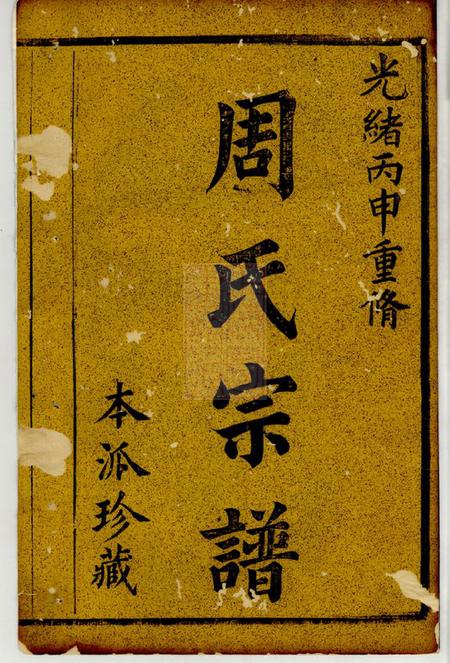 光緒丙申重脩
周氏宗譜
本派珍藏